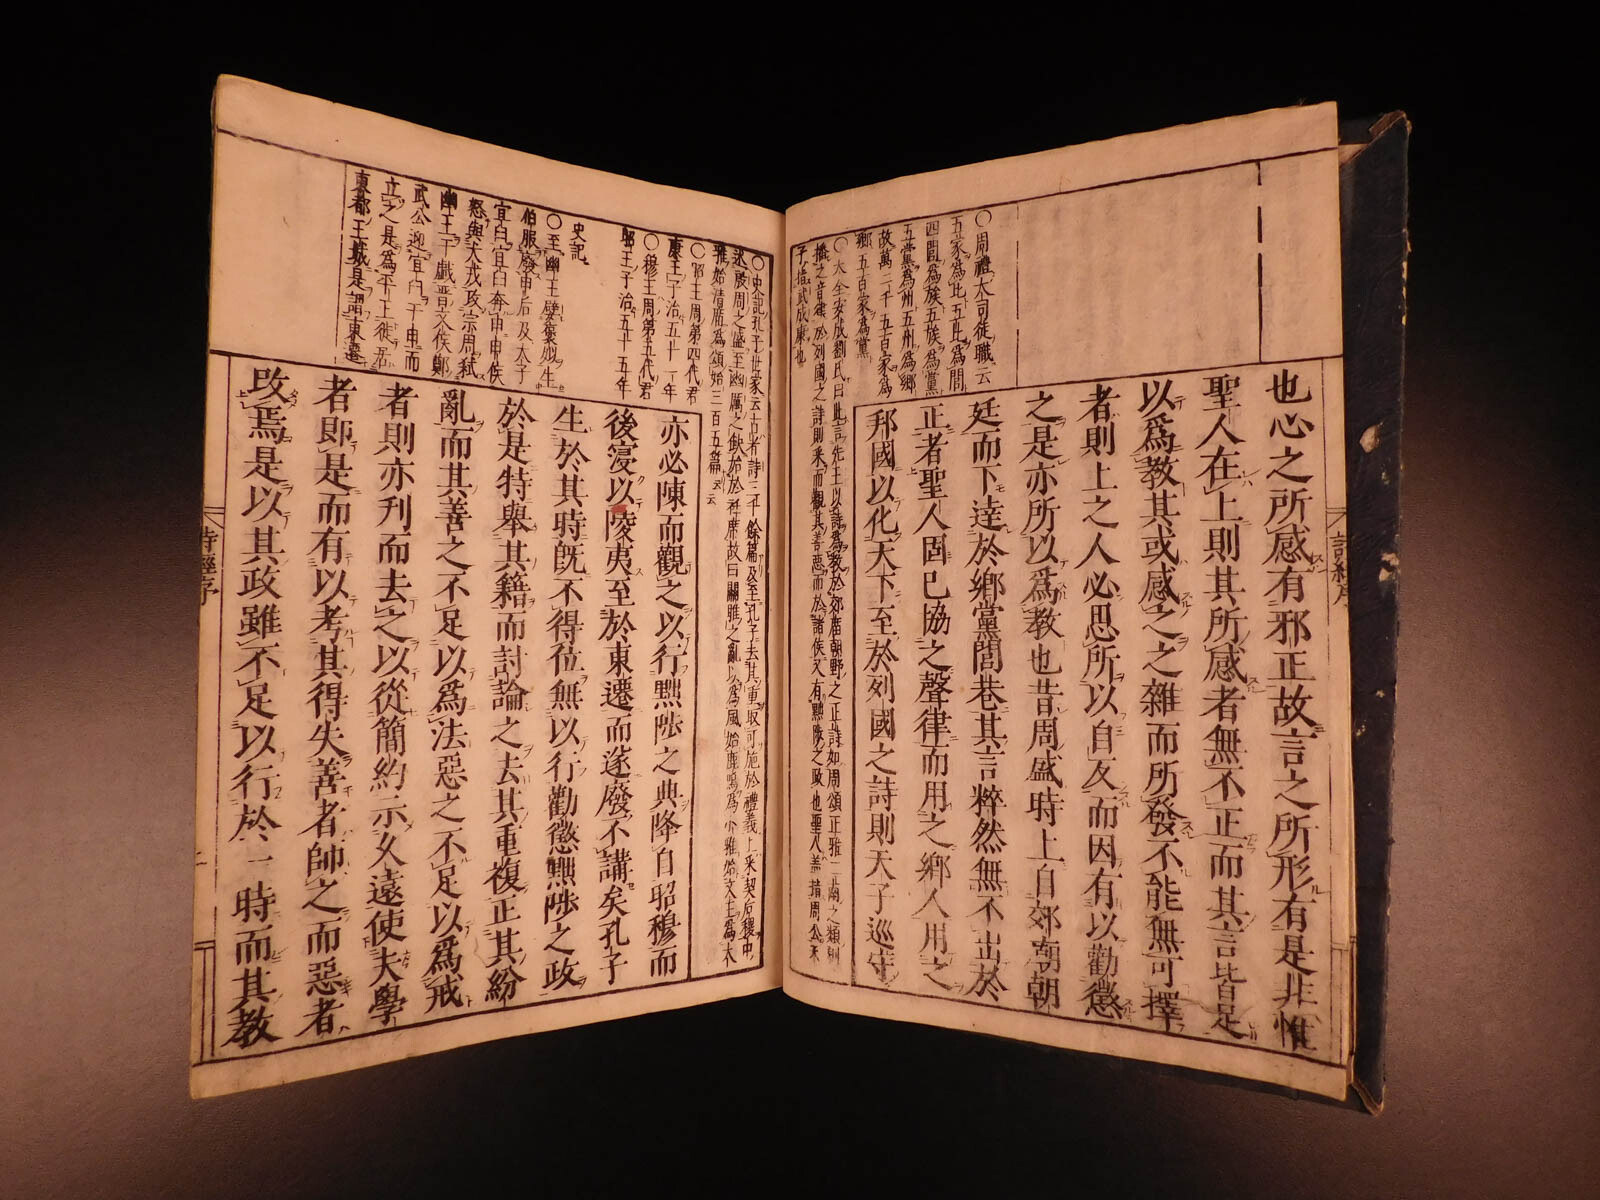 也心之所感有邪正故言之所形有是非惟
聖人在上則其所感者無不正而其言皆足
以爲教其或感之之雜而所發不能無可擇
者則上之人必思所以自反而因有以勸懲
之是亦所以爲教也昔周盛時上自郊朝朝
廷而下達於鄉黨閭巷其言粹然無不出於
正者聖人固已協之聲律而用之鄉人用之
邦國以化天下至於列國之詩則天子巡守
〇周禮大司徒職云
五家爲比五比爲閭
四閭爲族五族爲黨
五黨爲州五州爲鄉
故萬二千五百家爲
鄉五百家爲黨
〇大全安成劉氏曰此言先王以詩爲教於郊廟朝野之正詩如周頌正雅二南之類
播之音律於列國之詩則采而觀其善惡而於諸侯又有黜陟之政也聖人蓋指周公
子指武成康也
詩經序
亦必陳而觀之以行黜陟之典降自昭穆而
後寖以陵夷至於東遷而遂廢不講矣孔子
生於其時旣不得位無以行勸懲黜陟之政
於是特舉其籍而討論之去其重複正其紛
亂而其善之不足以爲法惡之不足以爲戒
者則亦刊而去之以從簡約示久遠使夫學
者即是而有以考其得失善者師之而惡者
改焉是以其政雖不足以行於一時而其教
〇史記孔子世家云古者詩三千餘篇及至孔子去其重取可施於禮義上采契后稷中
述殷周之盛至幽厲之缺始於衽席故曰關雎之亂以爲風始鹿鳴爲小雅始文王爲大
雅始清廟爲頌始三百五篇云云
〇昭王周第四代君
康王子治五十一年
〇穆王周第五代君
昭王子治五十五年
史記
〇至幽王嬖褒姒生
伯服廢申后及太子
宜臼宜臼奔申申侯
怒與犬戎攻宗周弒
幽王于戲晉文侯鄭
武公迎宜臼于申而
立之是爲平王徙居
東都王城是謂東遷
詩經序
二